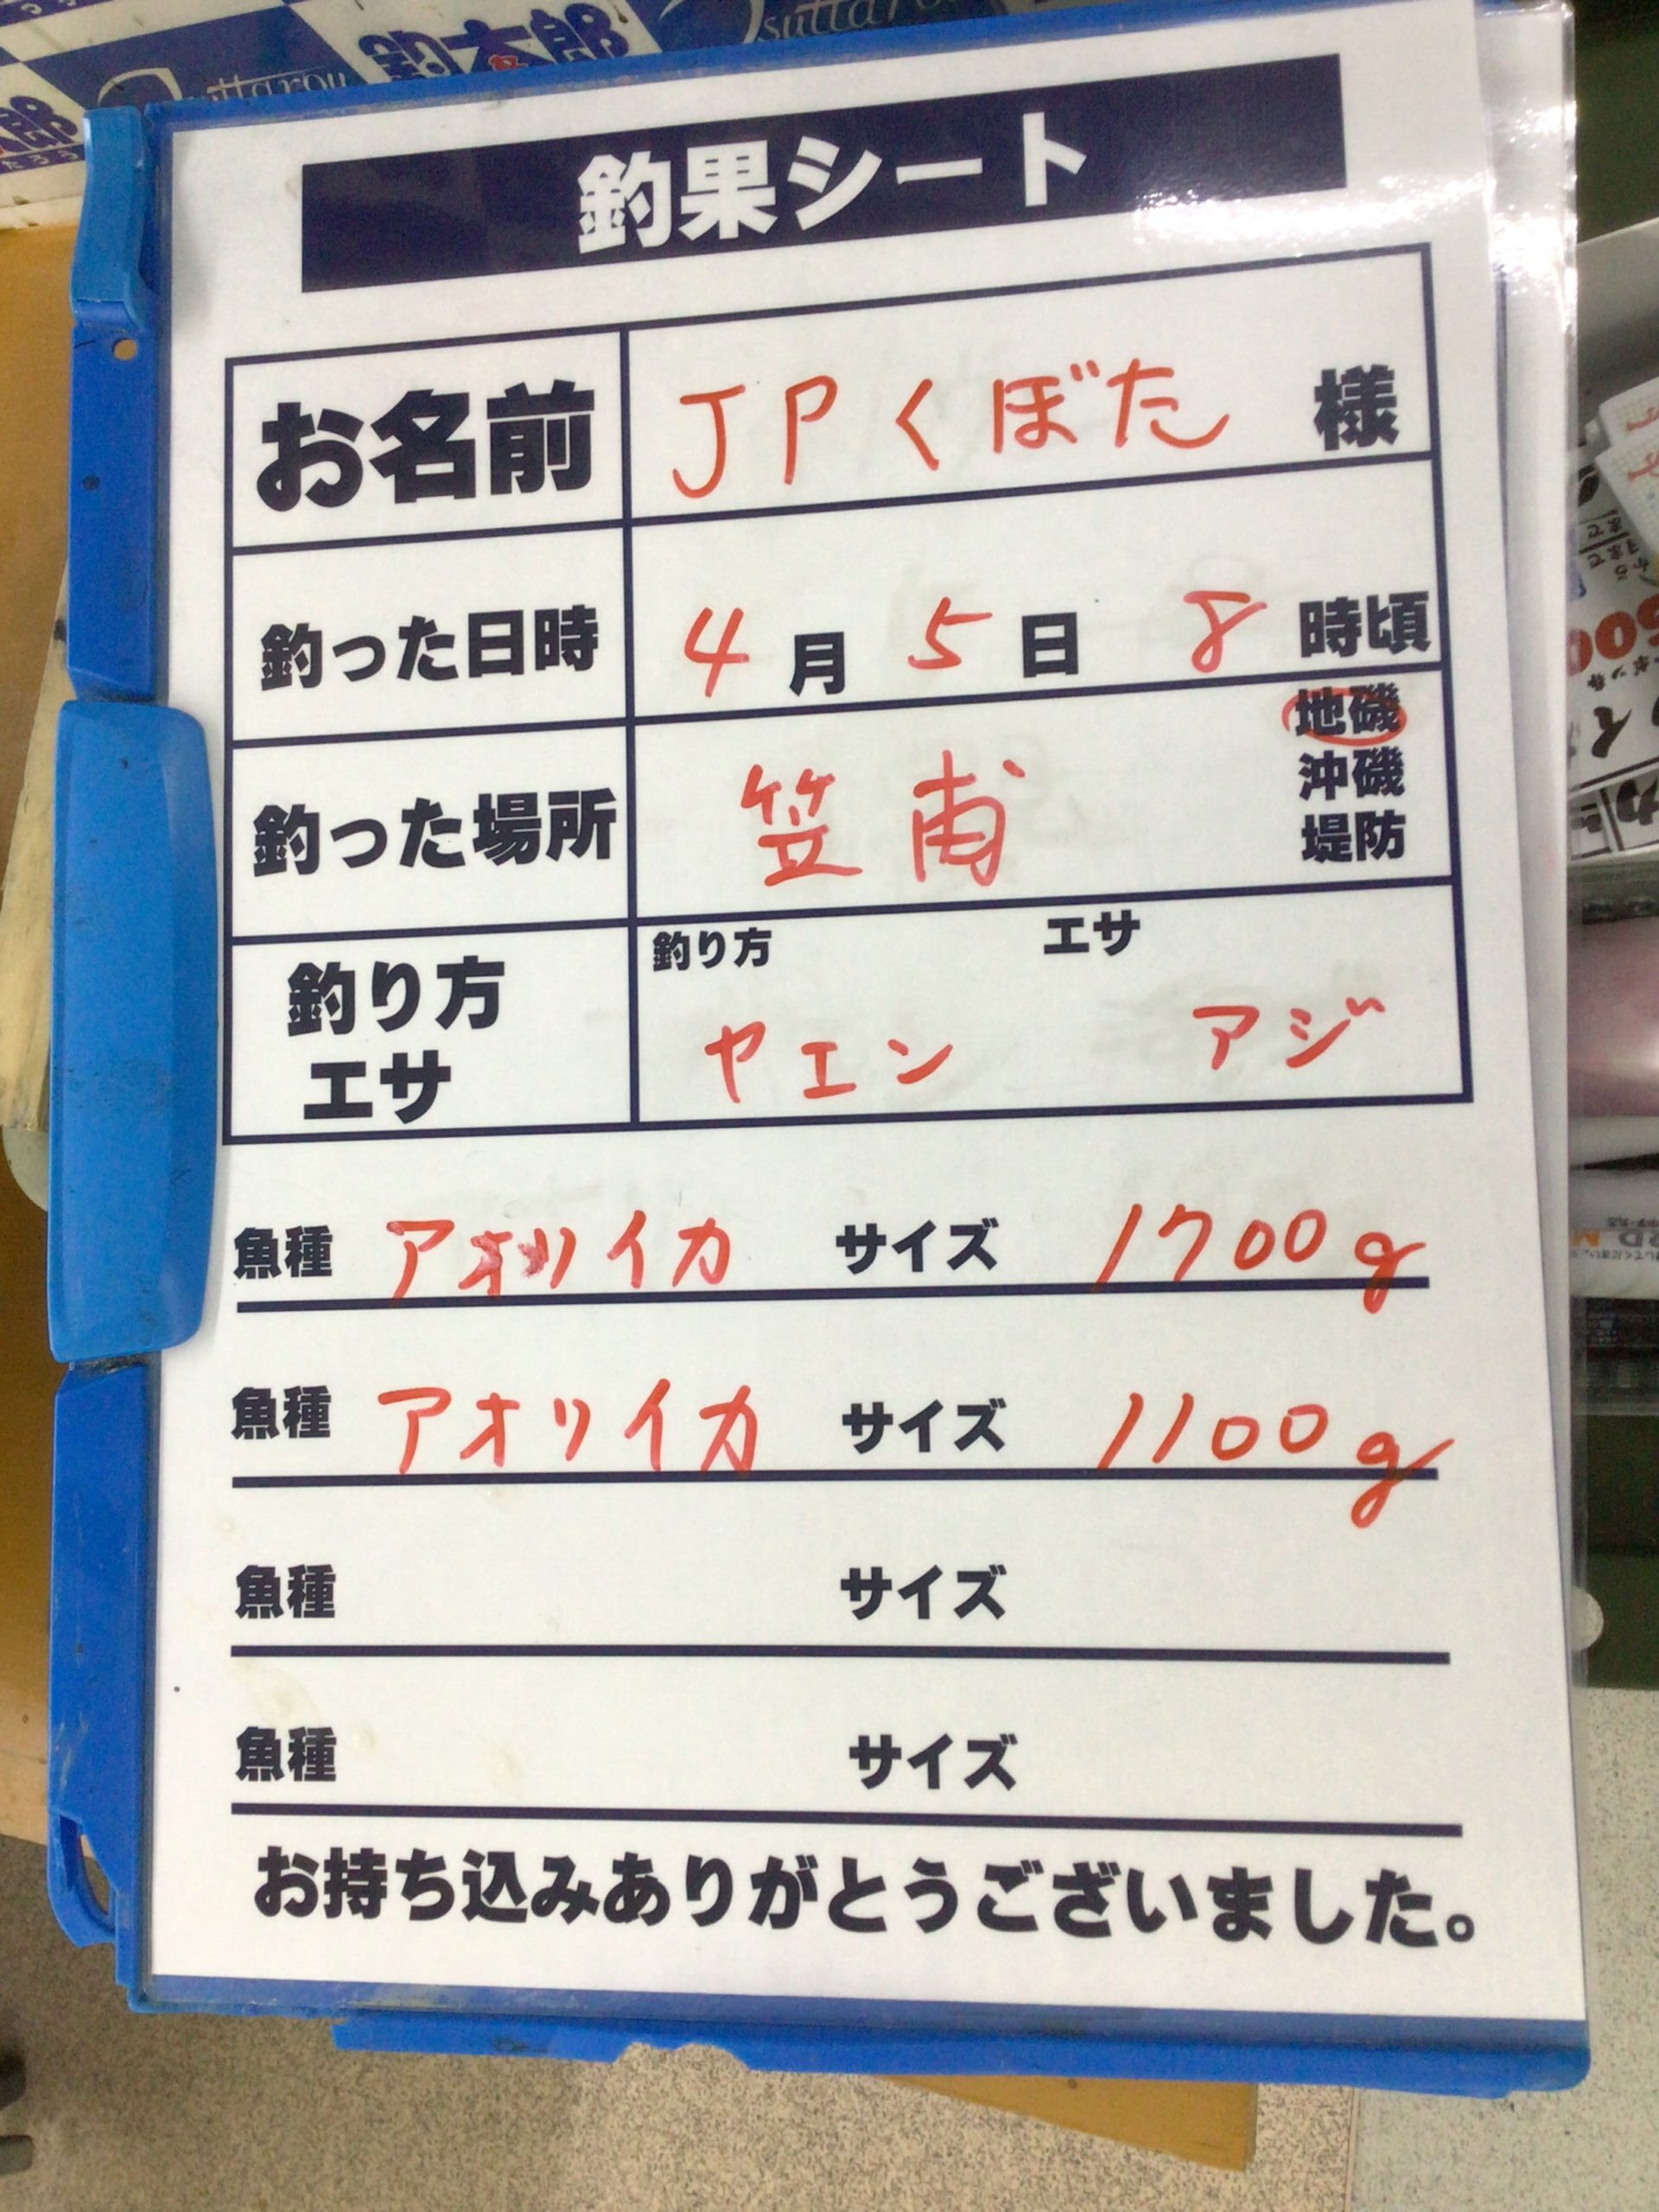 釣太郎
Tsuttarou
釣果シート
お名前 JPくぼた 様
釣った日時 4月 5日 8時頃
釣った場所 笠甫 地磯
沖磯
堤防
釣り方
エサ
釣り方 エサ
ヤエン アジ
魚種 アオリイカ サイズ 1700g
魚種 アオリイカ サイズ 1100g
魚種 サイズ
魚種 サイズ
お持ち込みありがとうございました。